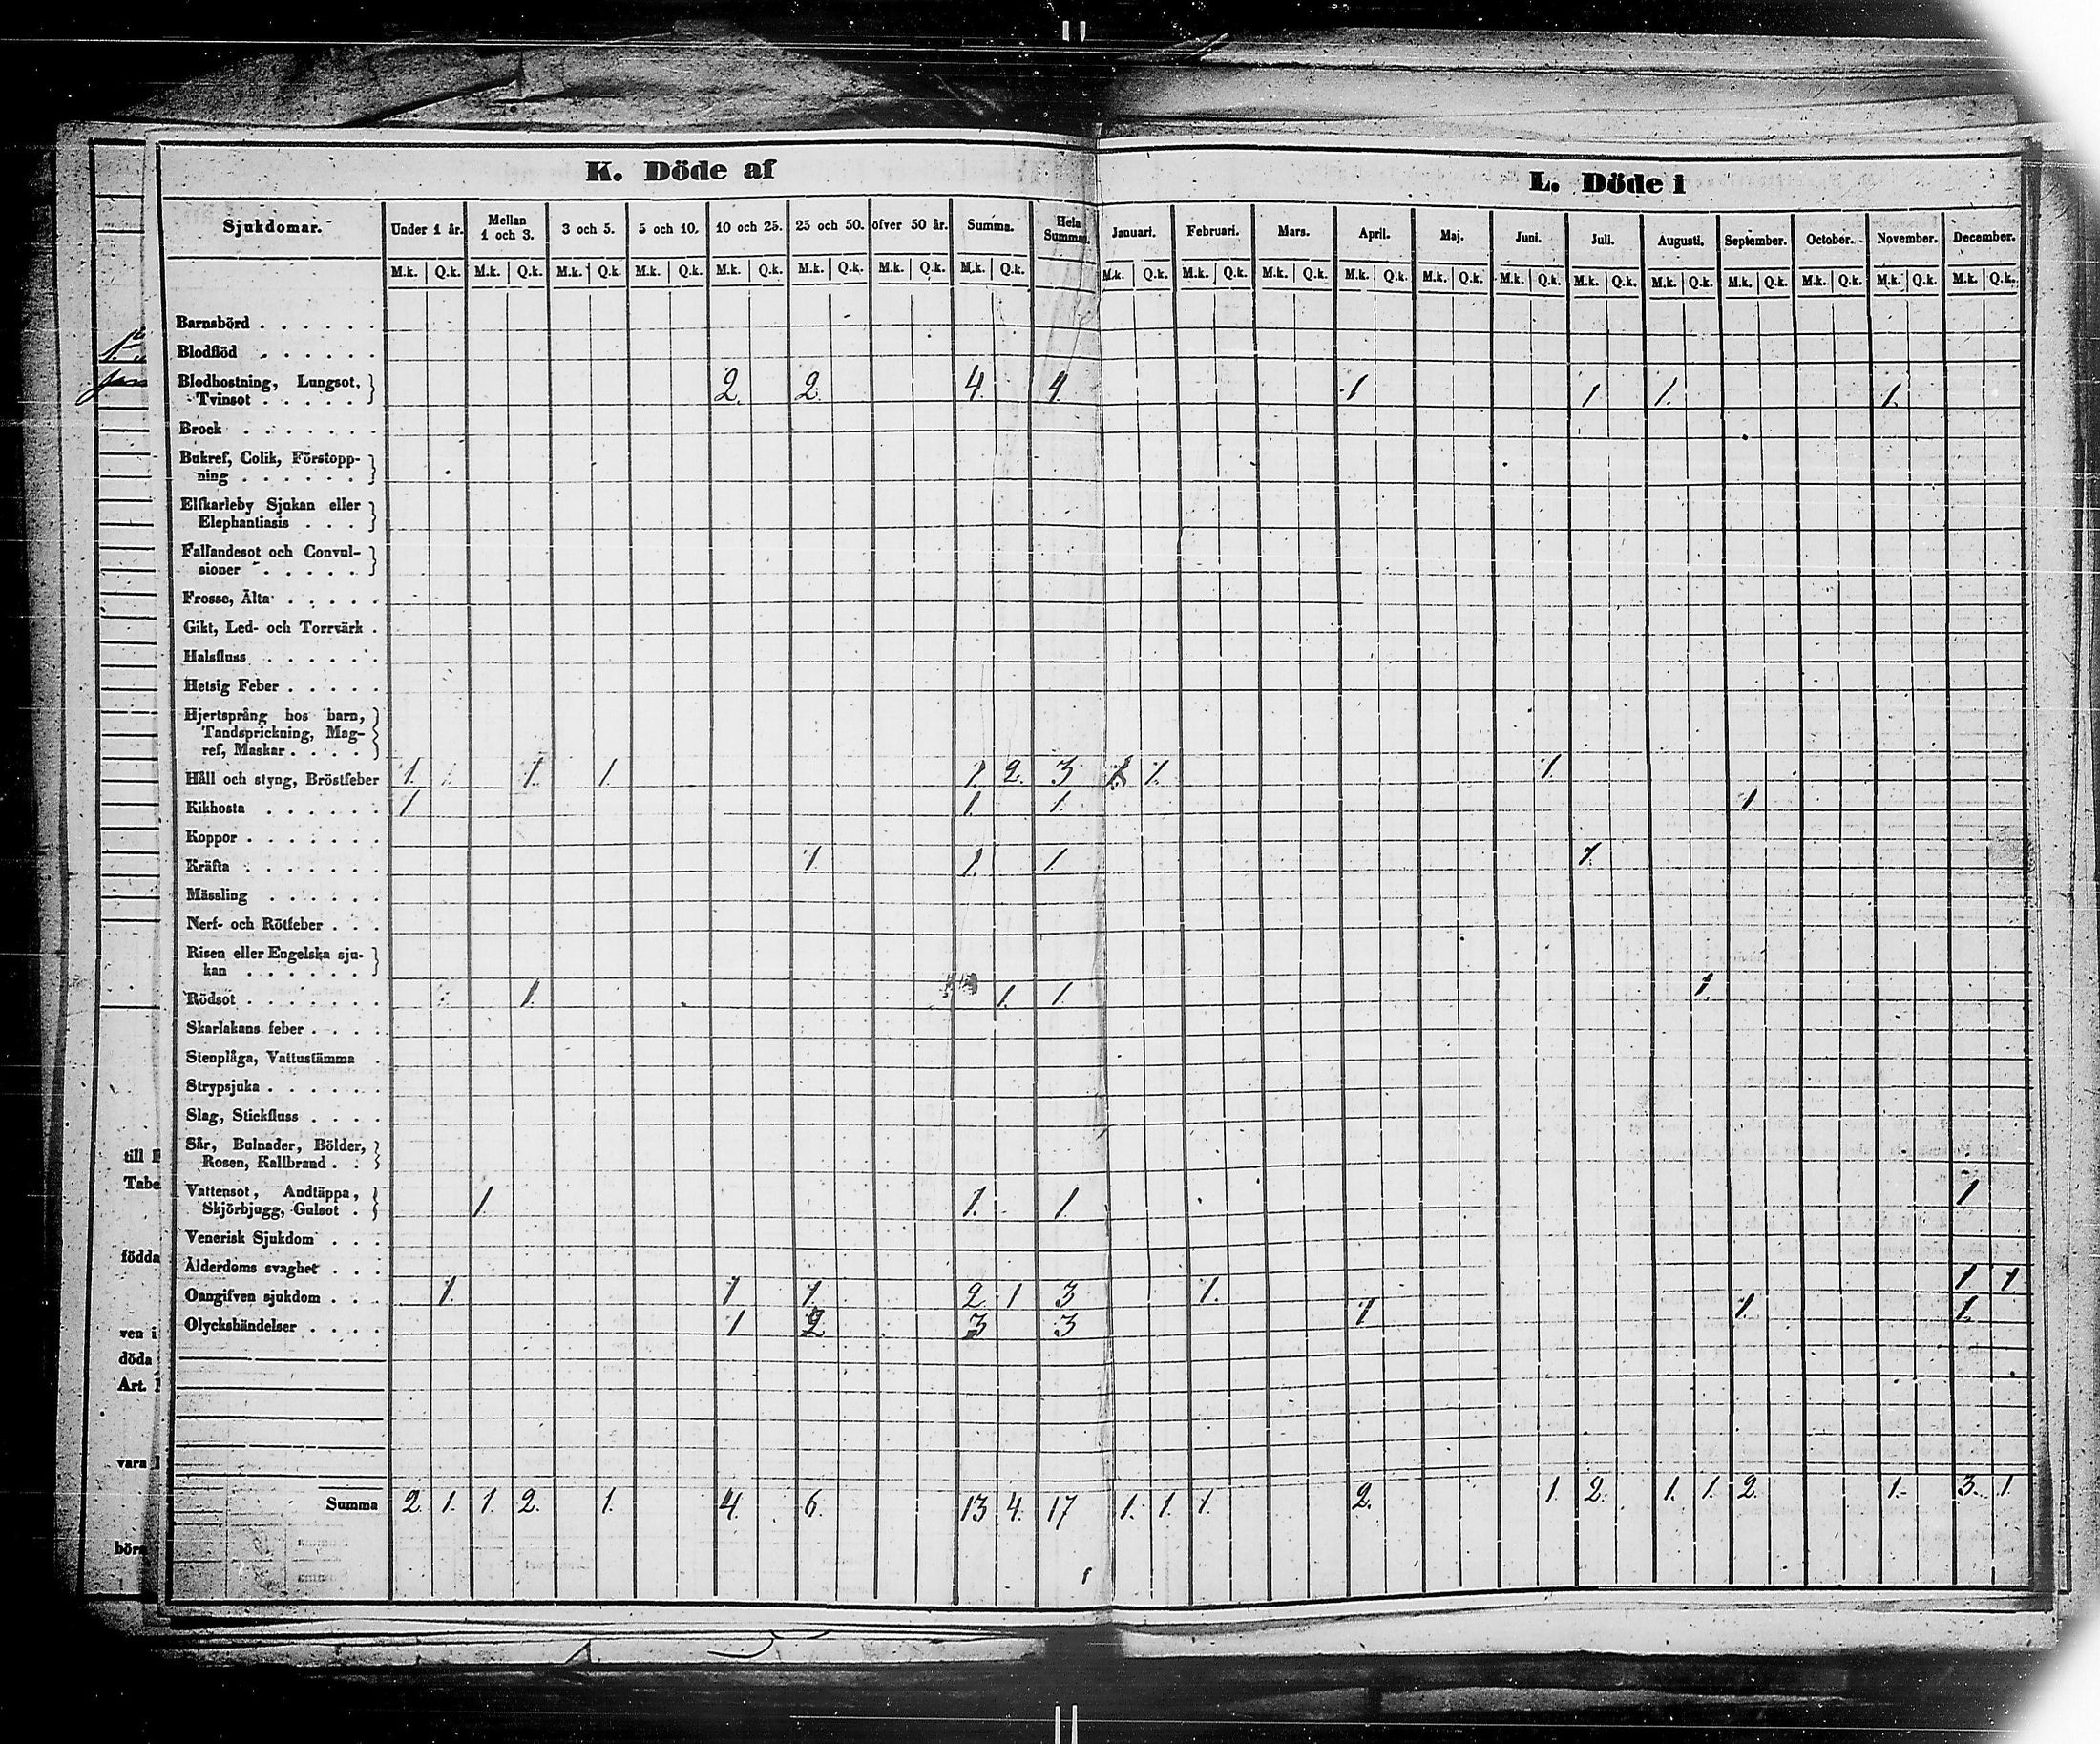 K. Döde af
L. Döde i
Sjukdomar. Under 1 år. Mellan 1 och 3. 3 och 5. 5 och 10. 10 och 25. 25 och 50. öfver 50 år. Summa. Hela Summan. Januari. Februari. Mars. April. Maj. Juni. Juli. Augusti. September. October. November. December.
M.k. Q.k. M.k. Q.k. M.k. Q.k. M.k. Q.k. M.k. Q.k. M.k. Q.k. M.k. Q.k. M.k. Q.k. M.k. Q.k. M.k. Q.k. M.k. Q.k. M.k. Q.k. M.k. Q.k. M.k. Q.k. M.k. Q.k. M.k. Q.k. M.k. Q.k. M.k. Q.k. M.k. Q.k. M.k. Q.k.
Barnsbörd . . . . . .
Blodflöd . . . . . .
Blodhostning, Lungsot,
Tvinsot . . . . . 2. 2. 4. 4 1 1 1. 1.
Brock . . . . . . .
Bukref, Colik, Förstopp-
ning . . . . . .
Elfkarleby Sjukan eller
Elephantiasis . . .
Fallandesot och Convul-
sioner . . . . .
Frosse, Älta . . . . .
Gikt, Led- och Torrvärk .
Halsfluss . . . . . .
Hetsig Feber . . . . .
Hjertsprång hos barn,
Tandsprickning, Mag-
ref, Maskar . . . .
Håll och styng, Bröstfeber 1. 1. 1. 1. 2. 3 1. 1. 1.
Kikhosta . . . . . . 1 1. 1. 1.
Koppor . . . . . . .
Kräfta . . . . . . . 1. 1. 1. 1.
Mässling . . . . . .
Nerf- och Rötfeber . . .
Risen eller Engelska sju-
kan . . . . . .
Rödsot . . . . . . . 1. 1. 1. 1.
Skarlakans feber . . . .
Stenplåga, Vattustämma .
Strypsjuka . . . . . .
Slag, Stickfluss . . . .
Sår, Bulnader, Bölder,
Rosen, Kallbrand . .
Vattensot, Andtäppa,
Skjörbjugg, Gulsot . 1 1. 1. 1
Venerisk Sjukdom . . .
Ålderdoms svaghet . . .
Oangifven sjukdom . . . 1. 1 1. 2 1 3 1. 1 1
Olyckshändelser . . . . 1 2 3 3 1 1. 1.
Summa 2 1. 1. 2. 1. 4. 6. 13 4. 17 1. 1. 1. 2. 1. 2. 1. 1. 2. 1. 3. 1.
till
Tabe
födda
ven i
döda
Art.
vara
börs